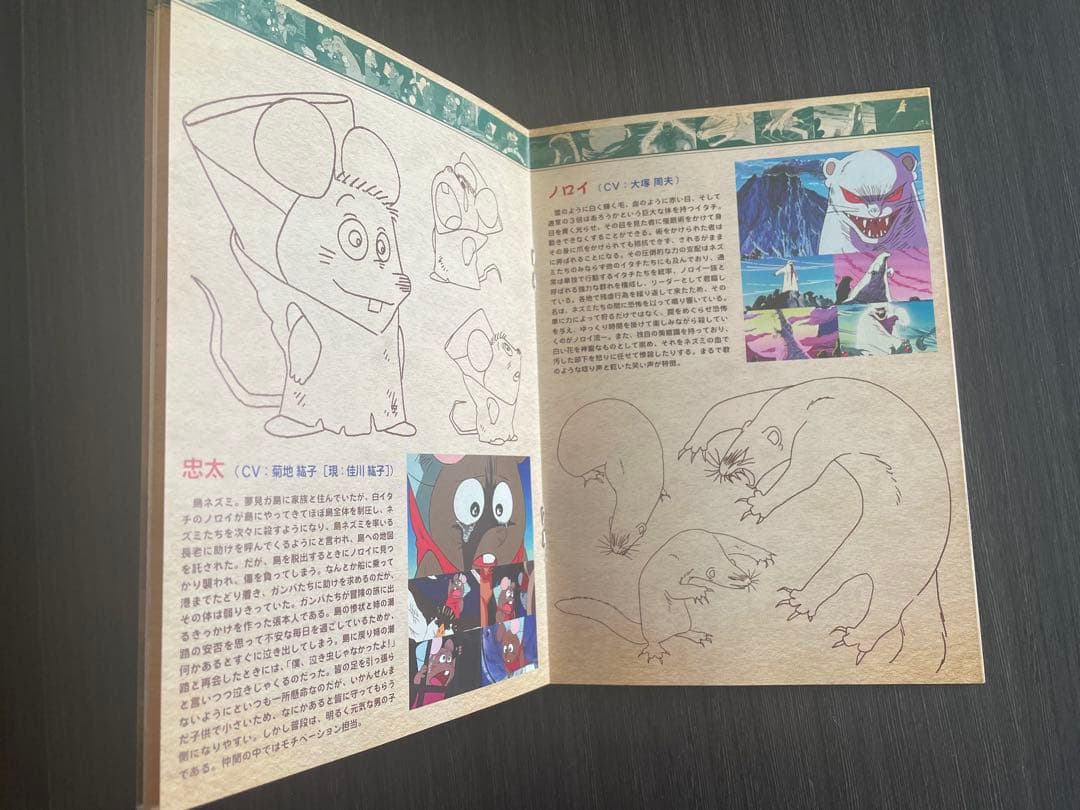 忠太 (CV：菊地 紘子 [現：佳川 紘子])
島ネズミ。夢見が島に家族と住んでいたが、白イタ
チのノロイが島にやってきてほぼ島全体を制圧し、ネ
ズミたちを次々に殺すようになり、島ネズミを率いる
長老に助けを呼んでくるようにと言われ、島への地図
を託された。だが、島を脱出するときにノロイに見つ
かり襲われ、傷を負ってしまう。なんとか船に乗って
港までたどり着き、ガンバたちに助けを求めるのだが、
その体は弱りきっていた。ガンバたちが冒険の旅に出
るきっかけを作った張本人である。島の惨状と姉の潮
路の安否を思って不安な毎日を過ごしているためか、
何かあるとすぐに泣き出してしまう。島に戻り姉の潮
路と再会したときには、「僕、泣き虫じゃなかったよ!」
と言いつつ泣きじゃくるのだった。皆の足を引っ張ら
ないようにといつも一所懸命なのだが、いかんせんま
だ子供で小さいため、なにかあると皆に守ってもらう
側になりやすい。しかし普段は、明るく元気な男の子
である。仲間の中ではモチベーション担当。
ノロイ (CV：大塚 周夫)
のように白く輝く毛、血のように赤い目、そして
通常の3倍はあろうかという巨大な体を持つイタチ。
目を青く光らせ、その目を見た者に催眠術をかけて身
動きできなくすることができる。術をかけられた者は
その身に爪をかけられても抵抗できず、されるがまま
に弄ばれることになる。その圧倒的な力の支配はネズ
ミたちのみならず他のイタチたちにも及んでおり、通
常は単独で行動するイタチたちを統率、ノロイ一族と
呼ばれる強力な群れを構成し、リーダーとして君臨し
ている。各地で残虐行為を繰り返して来たため、その
名は、ネズミたちの間に恐怖を以って鳴り響いている。
単に力によって狩るだけではなく、罠をめぐらせ恐怖
を与え、ゆっくり時間を掛けて楽しみながら殺してい
くのがノロイ流ー。また、独自の美意識を持っており、
白い花を神聖なものとして崇め、それをネズミの血で
汚した部下を怒りに任せて惨殺したりする。まるで
のような唸り声と乾いた笑い声が特徴。